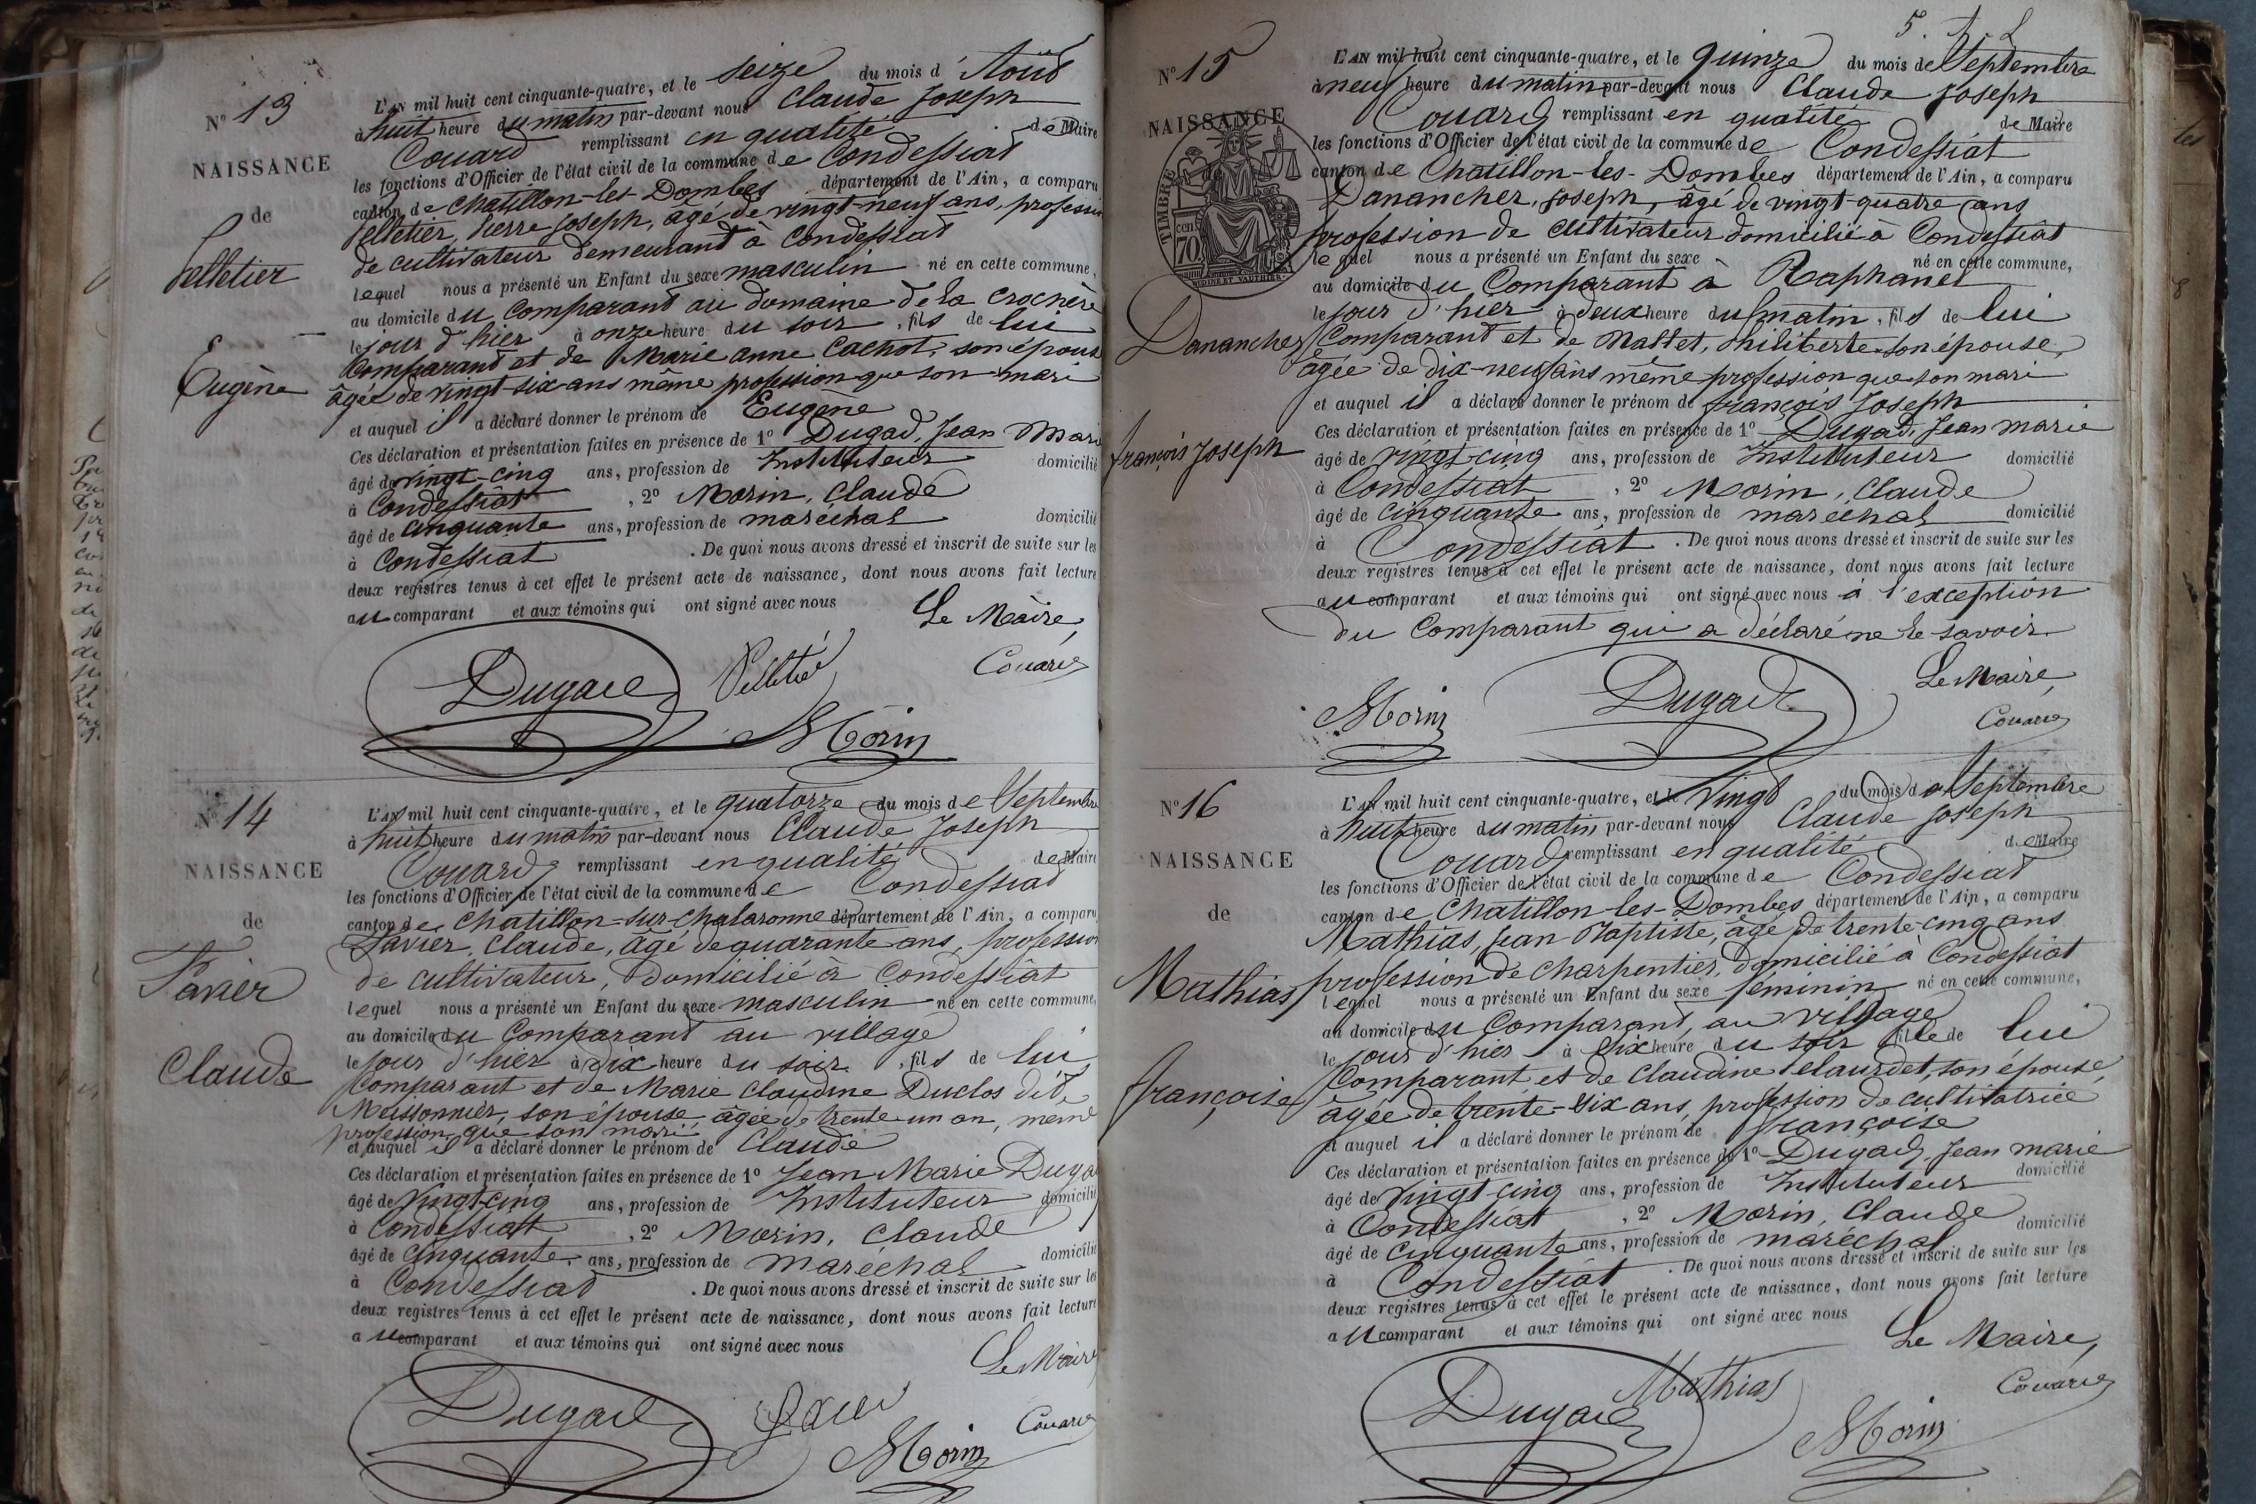 N° 13
NAISSANCE
de
Pelletier
Eugène
L'AN mil huit cent cinquante-quatre, et le seize du mois d'Août
à huit heure du matin par-devant nous Claude Joseph
Couard remplissant en qualité de Maire
les fonctions d'Officier de l'état civil de la commune de Condessiat
canton de Chatillon-les-Dombes département de l'Ain, a comparu
Pelletier, Pierre Joseph, âgé de vingt-neuf ans, profession
de cultivateur demeurant à Condessiat
lequel nous a présenté un Enfant du sexe masculin né en cette commune,
au domicile du Comparant au domaine de la
le jour d'hier à onze heure du soir, fils de lui
Comparant et de Marie anne Cachot, son épouse
âgée de vingt-six ans même profession que son mari
et auquel il a déclaré donner le prénom de Eugène
Ces déclaration et présentation faites en présence de 1° Dugad, Jean Marie
âgé de vingt-cinq ans, profession de Instituteur domicilié
à Condessiat, 2° Morin, Claude
âgé de cinquante ans, profession de maréchal domicilié
à Condessiat. De quoi nous avons dressé et inscrit de suite sur les
deux registres tenus à cet effet le présent acte de naissance, dont nous avons fait lecture
au comparant et aux témoins qui ont signé avec nous
Le Maire,
Dugad Pelletié Couard
Morin
N° 14
NAISSANCE
de
Favier
Claude
L'AN mil huit cent cinquante-quatre, et le quatorze du mois de Septembre
à huit heure du matin par-devant nous Claude Joseph
Couard remplissant en qualité de Maire
les fonctions d'Officier de l'état civil de la commune de Condessiat
canton de Chatillon-sur-Chalaronne département de l'Ain, a comparu
Favier, Claude, âgé de quarante ans, profession
de cultivateur, domicilié à Condessiat
lequel nous a présenté un Enfant du sexe masculin né en cette commune,
au domicile du Comparant au village
le jour d'hier à dix heure du soir, fils de lui
Comparant et de Marie Claudine Duclos dit
Meissonnier, son épouse âgée de trente un an, même
profession que son mari
et auquel il a déclaré donner le prénom de Claude
Ces déclaration et présentation faites en présence de 1° Jean Marie Dugad
âgé de vingt-cinq ans, profession de Instituteur domicilié
à Condessiat, 2° Morin, Claude
âgé de cinquante ans, profession de maréchal domicilié
à Condessiat. De quoi nous avons dressé et inscrit de suite sur les
deux registres tenus à cet effet le présent acte de naissance, dont nous avons fait lecture
au comparant et aux témoins qui ont signé avec nous
Le Maire
Dugad Couard
Morin
N° 15
NAISSANCE
de
TIMBRE
70 cen.
Danancher
françois Joseph
L'AN mil huit cent cinquante-quatre, et le quinze du mois de Septembre
à neuf heure du matin par-devant nous Claude Joseph
Couard remplissant en qualité de Maire
les fonctions d'Officier de l'état civil de la commune de Condessiat
canton de Chatillon-les-Dombes département de l'Ain, a comparu
Danancher, Joseph, âgé de vingt-quatre ans
profession de cultivateur domicilié à Condessiat
lequel nous a présenté un Enfant du sexe né en cette commune,
au domicile du Comparant à Raphanel
le jour d'hier à deux heure du matin, fils de lui
Comparant et de Mattet, Philiberte son épouse,
âgée de dix-neuf ans même profession que son mari
et auquel il a déclaré donner le prénom de françois Joseph
Ces déclaration et présentation faites en présence de 1° Dugad, Jean marie
âgé de vingt-cinq ans, profession de Instituteur domicilié
à Condessiat, 2° Morin, Claude
âgé de cinquante ans, profession de marechal domicilié
à Condessiat. De quoi nous avons dressé et inscrit de suite sur les
deux registres tenus à cet effet le présent acte de naissance, dont nous avons fait lecture
au comparant et aux témoins qui ont signé avec nous à l'exception
du Comparant qui a déclaré ne le savoir.
Le Maire,
Morin Dugad Couard
N° 16
NAISSANCE
de
Mathias
françoise
L'AN mil huit cent cinquante-quatre, et le vingt du mois de Septembre
à huit heure du matin par-devant nous Claude Joseph
Couard remplissant en qualité de Maire
les fonctions d'Officier de l'état civil de la commune de Condessiat
canton de Chatillon-les-Dombes département de l'Ain, a comparu
Mathias, Jean Baptiste, âgé de trente-cinq ans
profession de charpentier, domicilié à Condessiat
lequel nous a présenté un Enfant du sexe féminin né en cette commune,
au domicile du Comparant, au village
le jour d'hier à six heure du soir fille de lui
Comparant et de Claudine son épouse,
âgée de trente-six ans, profession de cultivatrice
et auquel il a déclaré donner le prénom de françoise
Ces déclaration et présentation faites en présence de 1° Dugad, Jean marie
âgé de vingt cinq ans, profession de Instituteur domicilié
à Condessiat, 2° Morin, Claude
âgé de cinquante ans, profession de maréchal domicilié
à Condessiat. De quoi nous avons dressé et inscrit de suite sur les
deux registres tenus à cet effet le présent acte de naissance, dont nous avons fait lecture
au comparant et aux témoins qui ont signé avec nous
Le Maire,
Dugad Mathias Couard
Morin